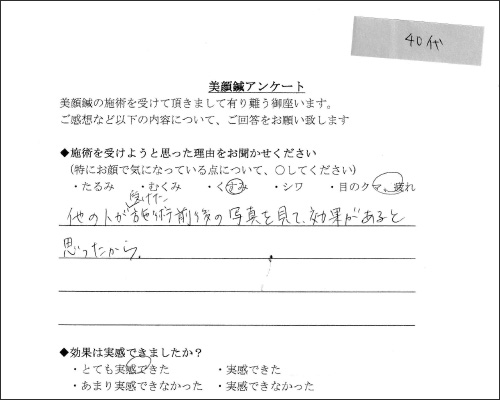 40代
美顔鍼アンケート
美顔鍼の施術を受けて頂きまして有り難う御座います。
ご感想など以下の内容について、ご回答をお願い致します
◆施術を受けようと思った理由をお聞かせください
(特にお顔で気になっている点について、○してください)
・たるみ ・むくみ ・くすみ ・シワ ・目のクマ、疲れ
受けた
他の人が施術前後の写真を見て、効果があると
思ったから。
◆効果は実感できましたか？
・とても実感できた ・実感できた
・あまり実感できなかった ・実感できなかった